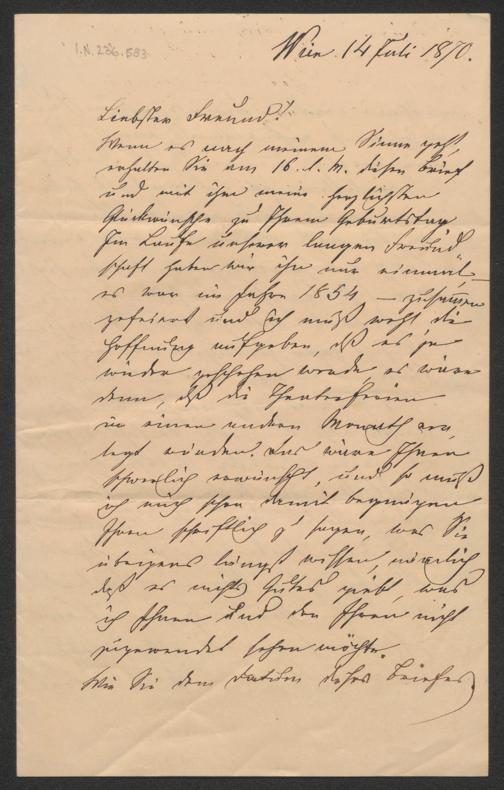 I.N. 236.583
Wien 14 Juli 1870.
Liebster Freund!
Wenn es nach meinem Sinne geht,
erhalten Sie am 16. l. M. diesen Brief
und mit ihm meine herzlichsten
Glückwünsche zu Ihrem Geburtstag.
Im Laufe unserer langen Freund
schaft haben wir ihn nur einmal,
es war im Jahre 1854 — zusammen
gefeiert und ich muß wohl die
Hoffnung aufgeben, daß es je
wieder geschehen werde, es wäre
denn, daß die Theaterferien
in einen andern Monath ver,
legt würden. Das wäre Ihnen
schwerlich erwünscht, und so muß
ich mich schon damit begnügen
Ihnen schriftlich z' sagen, was Sie
übrigens längst wissen, nämlich
daß es nichts Gutes giebt, was
ich Ihnen und den Ihren nicht
zugewendet sehen möchte.
Wie Sie dem Datum dieses Briefes